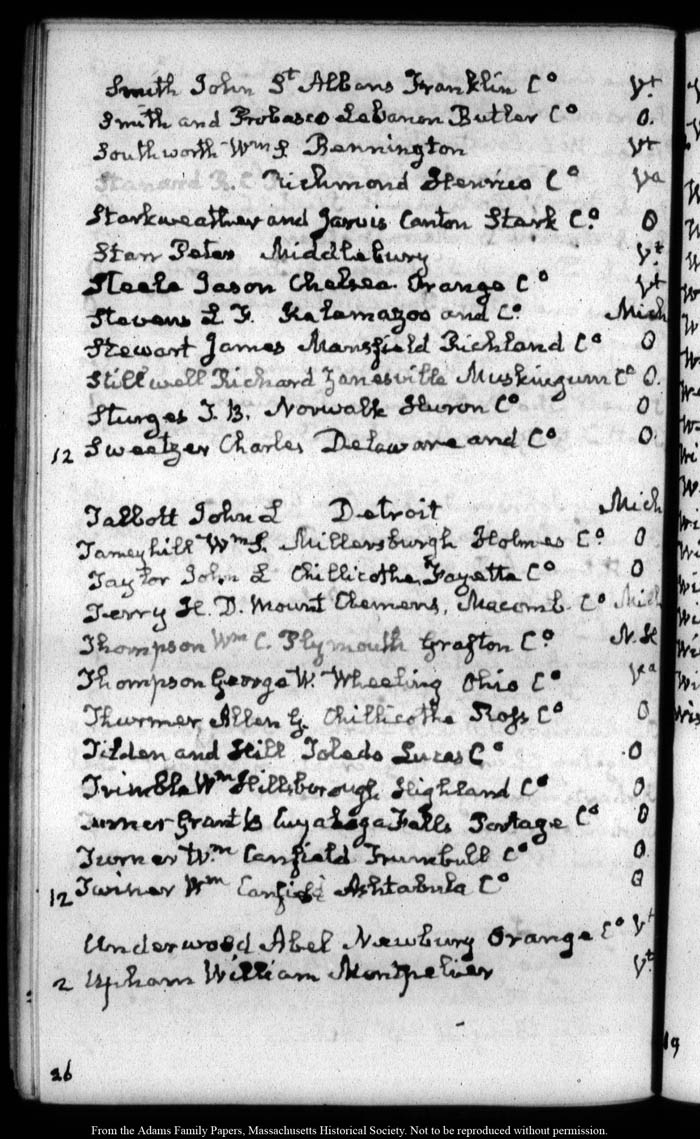 Smith John St Albans Franklin Co Vt
Smith and Probasco Lebanon Butler Co O.
Southworth Wm S. Bennington Vt
Stanard R. C. Richmond Henrico Co Va
Starkweather and Jarvis Canton Stark Co. O
Starr Peter Middlebury Vt
Steele Jason Chelsea Orange Co Vt
Stevens L F. Kalamazoo and Co. Mich
Stewart James Mansfield Richland Co O
Stillwell Richard Zanesville Muskingum Co O.
Sturges T. B. Norwalk Huron Co O
12 Sweetzer Charles Delaware and Co O.
Talbott John L Detroit Mich
Tameyhill Wm S. Millersburgh Holmes Co. O
Taylor John L Chillicothe, Fayette Co O
Terry H. D. Mount Clemens, Macomb Co Mich
Thompson Wm C. Plymouth Grafton Co. N.H
Thompson George W. Wheeling Ohio Co Va
Thurmer, Allen G. Chillicothe Ross Co O
Tilden and Hill Toledo Lucas Co O
Trimble Wm Hillsborough Highland Co O
Turner Grant B Cuyahoga Falls Portage Co O
Turner Wm Canfield Trumbull Co O
12 Twiner Wm Canfield Ashtabula Co O
Underwood Abel Newbury Orange Co Vt
2 Upham William Montpelier Vt.
26
19
From the Adams Family Papers, Massachusetts Historical Society. Not to be reproduced without permission.